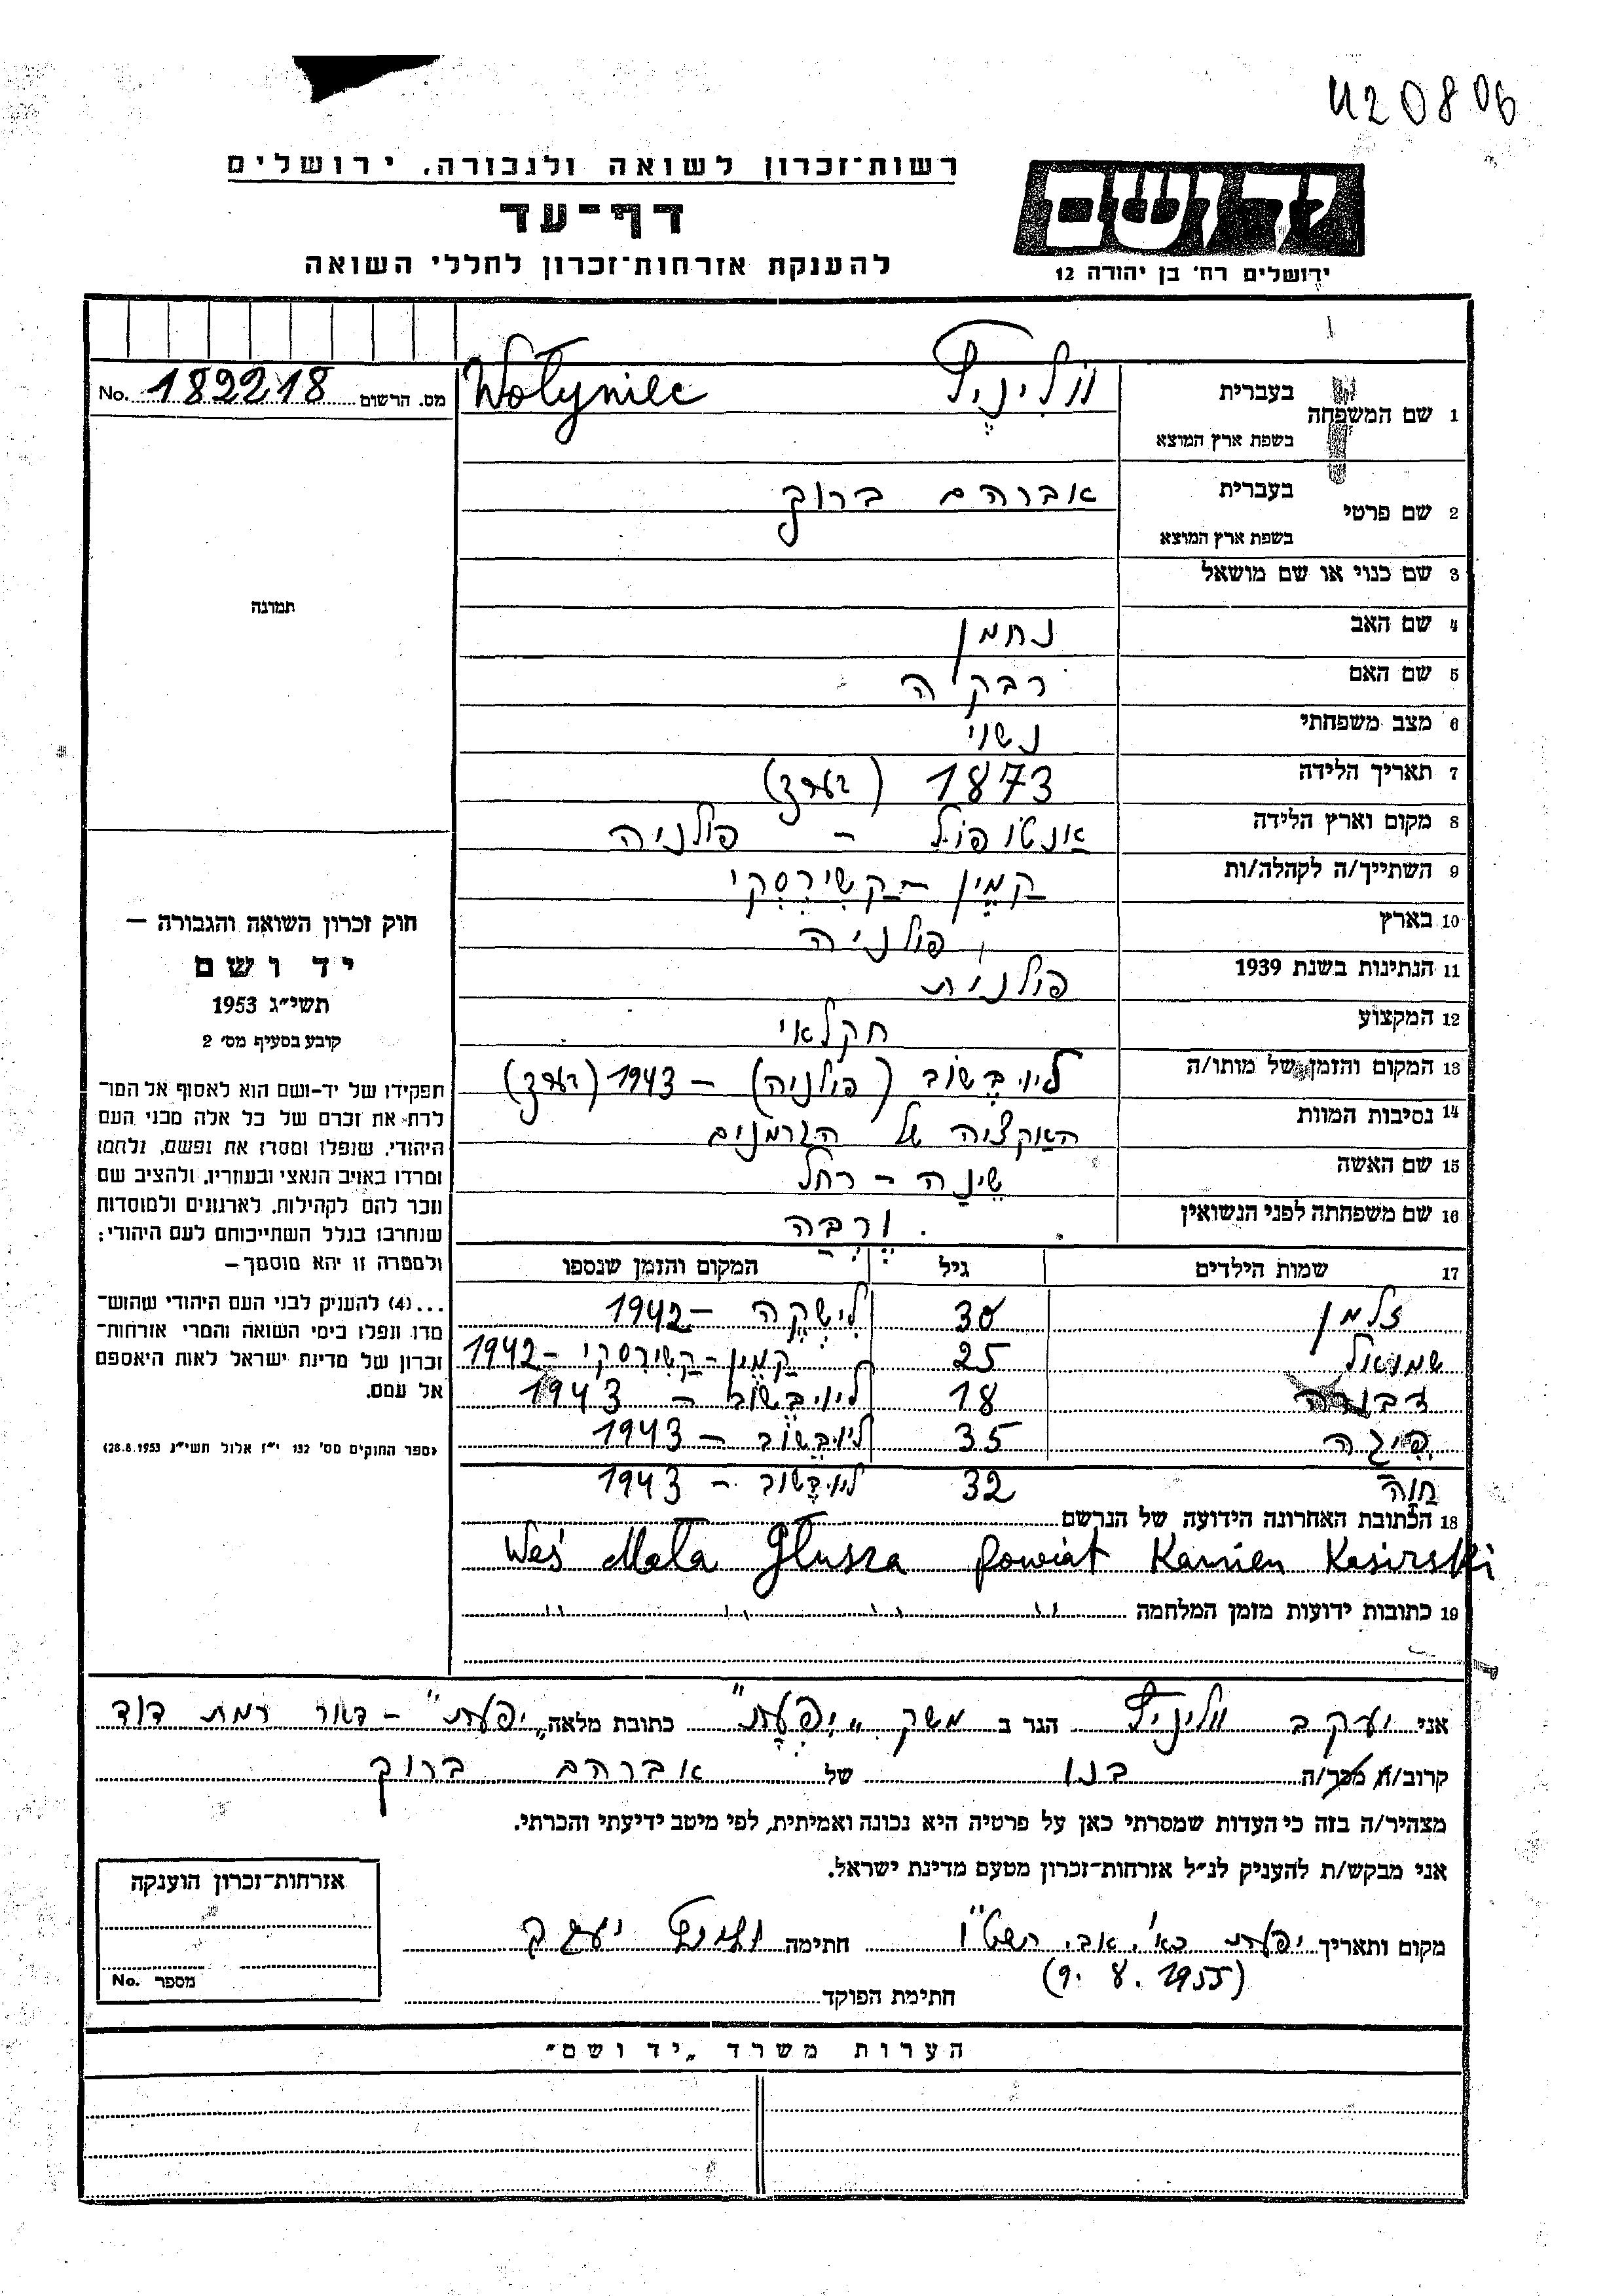 420806
ידושם
ירושלים רח׳ בן יהודה 12
רשות־זכרון לשואה ולגבורה. ירושלים
דף־עד
להענקת אזרחות־זכרון לחללי השואה
No. 182218 מס. הרשום
1 שם המשפחה בעברית ווליניץ Wołyniec
בשפת ארץ המוצא
2 שם פרטי בעברית אברהם ברוך
בשפת ארץ המוצא
3 שם כנוי או שם מושאל
4 שם האב נחמן
5 שם האם רבקה
6 מצב משפחתי נשוי
7 תאריך הלידה 1873 (בערך)
8 מקום וארץ הלידה אנטופול - פולניה
9 השתייך/ה לקהלה/ות קמין - קשירסקי
10 בארץ פולניה
11 הנתינות בשנת 1939 פולנית
12 המקצוע חקלאי
13 המקום והזמן של מותו/ה ליוביבשוב (פולניה) - 1943 (בערך)
14 נסיבות המוות האקציה של הגרמנים
15 שם האשה שינה - רחל
16 שם משפחתה לפני הנשואין ורבה
17 שמות הילדים גיל המקום והזמן שנספו
זלמן 30 לישקה - 1942
שמואל 25 קמין - קשירסקי - 1942
דבורה 18 ליוביבשוב - 1943
פיגה 35 ליובשוב - 1943
חוה 32 ליובשוב - 1943
18 הכתובת האחרונה הידועה של הנרשם
Weś Mała Głusza powiat Kamien Kasirski
19 כתובות ידועות מזמן המלחמה " " " " "
תמונה
חוק זכרון השואה והגבורה –
יד ושם
תשי״ג 1953
קובע בסעיף מס׳ 2
תפקידו של יד-ושם הוא לאסוף אל המו־
לדת את זכרם של כל אלה מבני העם
היהודי, שנפלו ומסרו את נפשם, נלחמו
ומרדו באויב הנאצי ובעוזריו, ולהציב שם
וזכר להם לקהילות, לארגונים ולמוסדות
שנחרבו בגלל השתייכותם לעם היהודי;
ולמטרה זו יהא מוסמך –
...(4) להעניק לבני העם היהודי שהוש־
מדו ונפלו בימי השואה והמרי אזרחות־
זכרון של מדינת ישראל לאות היאספם
אל עמם.
(ספר החוקים מס׳ 132 י״ז אלול תשי״ג 28.8.1953)
אני יעקב ווליניץ הגר ב משק „יפעת" כתובת מלאה „יפעת" - דאר רמת דוד
קרוב/ה מכר/ה בנו של אברהם ברוך
מצהיר/ה בזה כי העדות שמסרתי כאן על פרטיה היא נכונה ואמיתית, לפי מיטב ידיעתי והכרתי.
אני מבקש/ת להעניק לנ״ל אזרחות־זכרון מטעם מדינת ישראל.
מקום ותאריך יפעת כא׳. אב. תשט"ו חתימה ווליניץ יעקב
(9. 8. 1955)
חתימת הפוקד
אזרחות־זכרון הוענקה
מספר No.
הערות משרד „יד ושם״